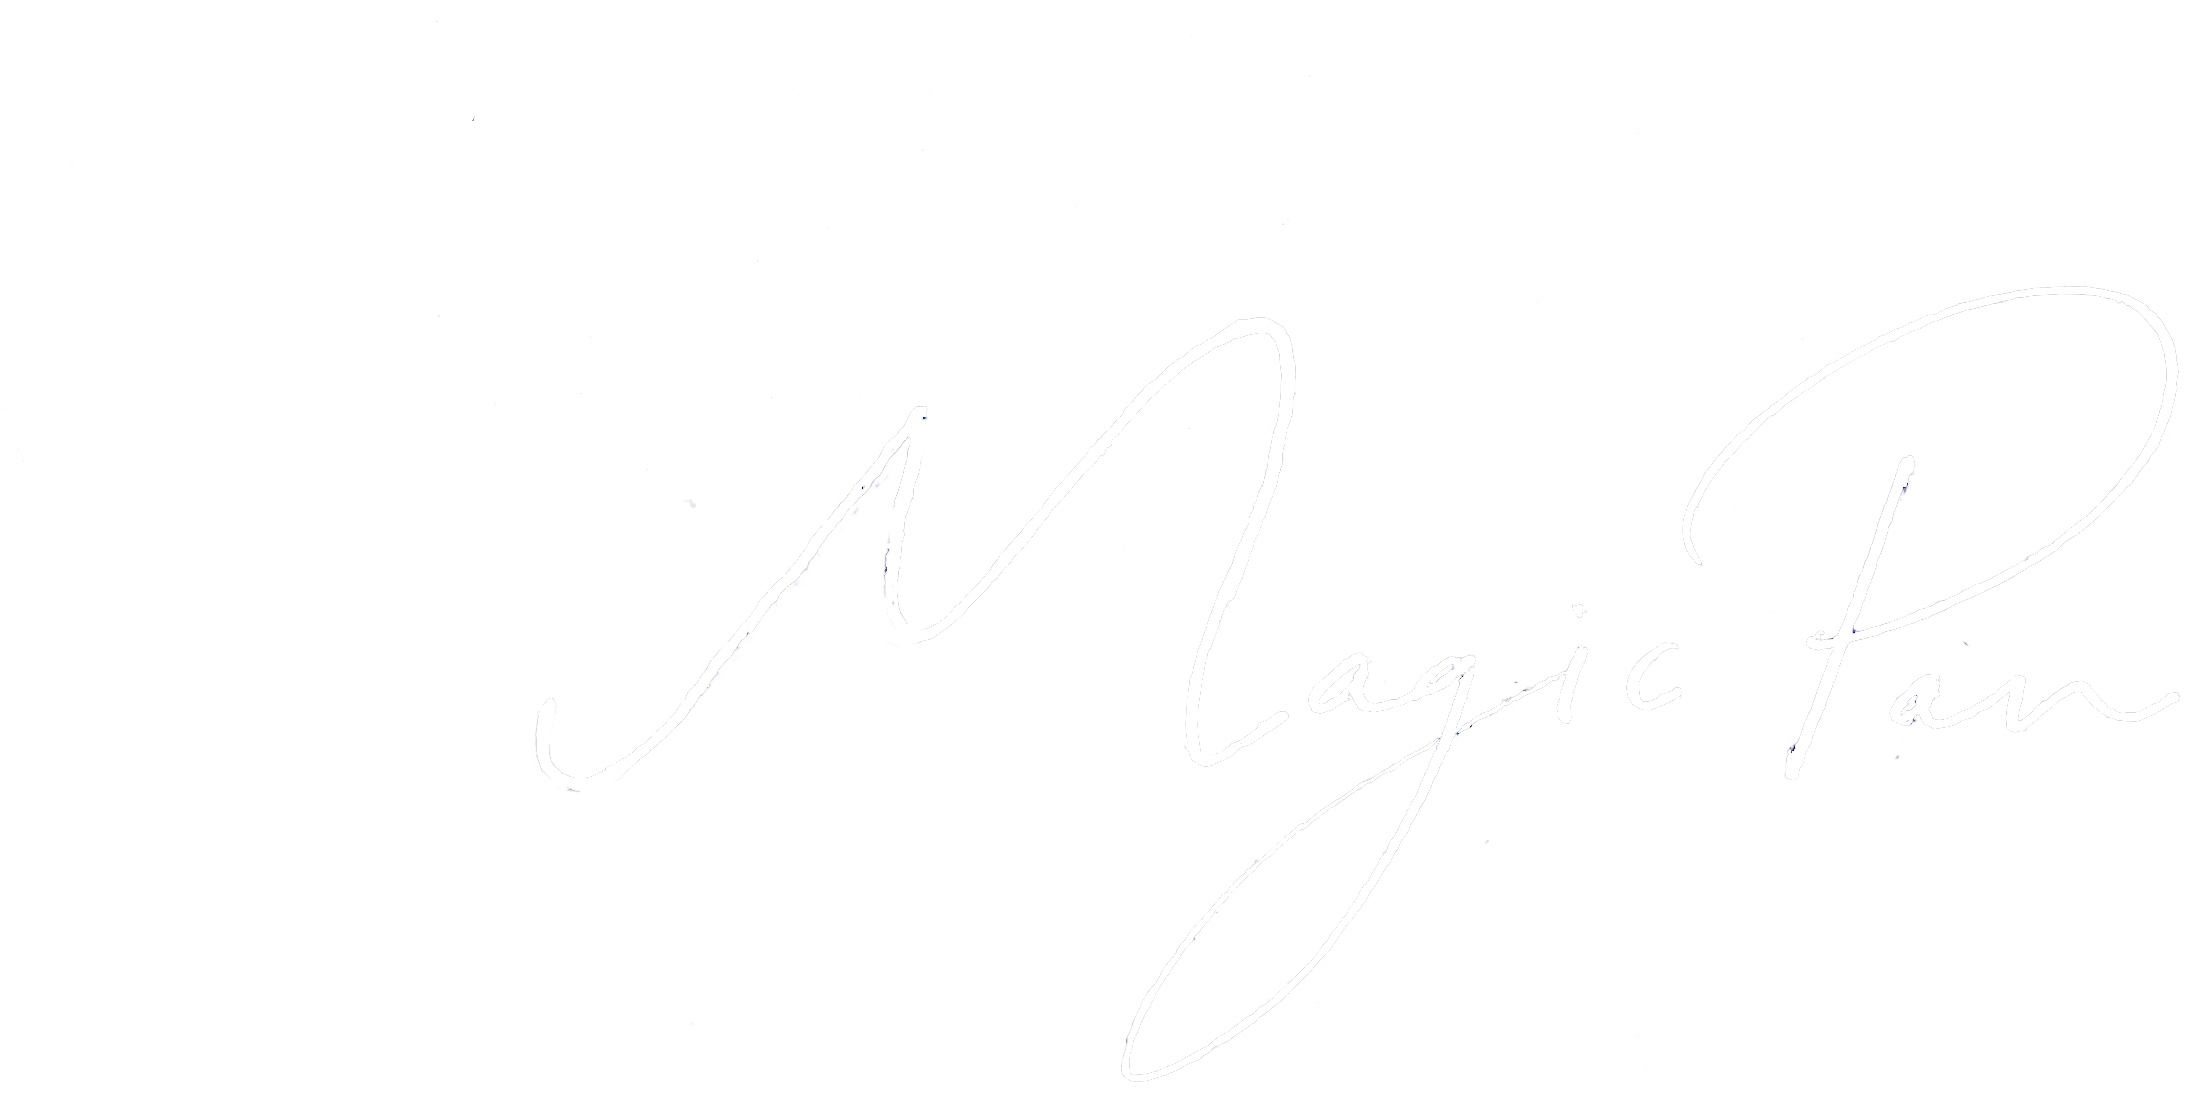 Magic Pan